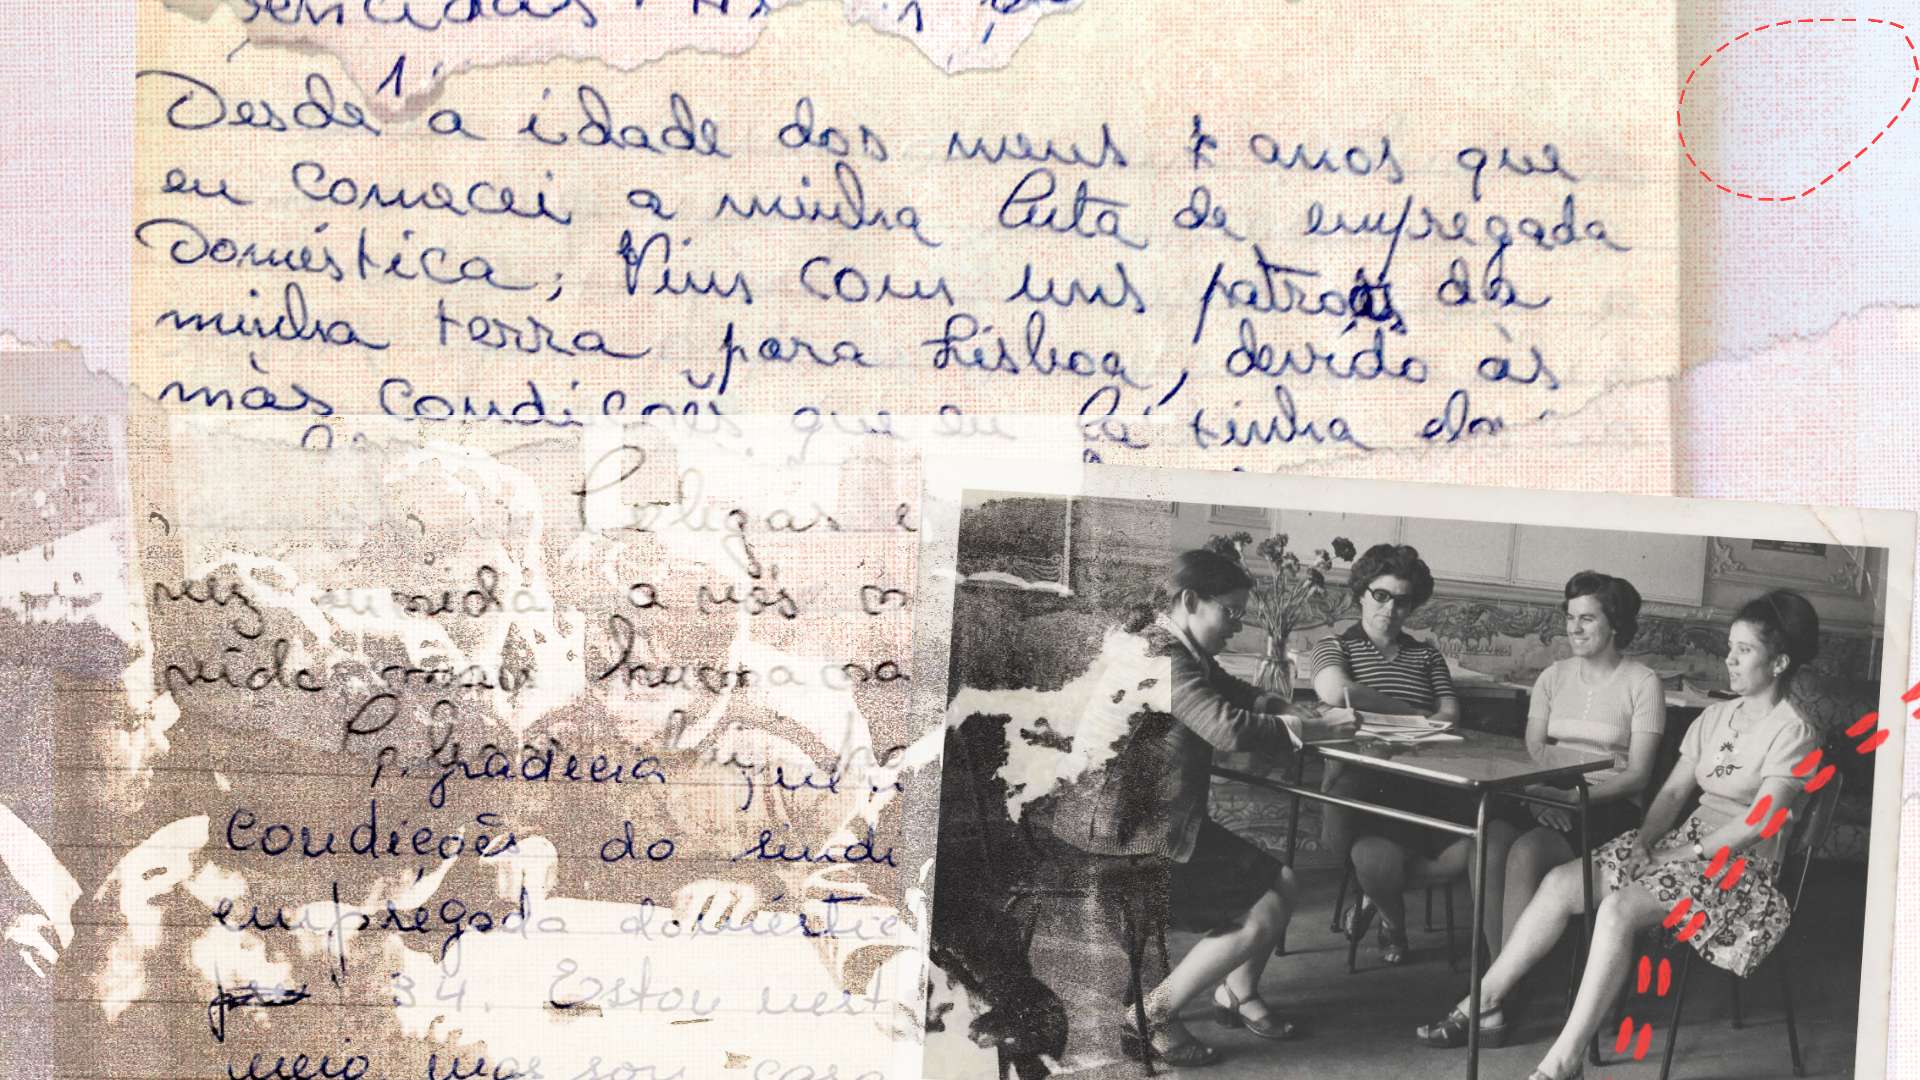 Desde a idade dos meus 7 anos que
eu comecei a minha luta de empregada
Doméstica; Vim com uns patrões da
minha terra para Lisboa, devido às
màs condições que eu lá tinha
Colegas
vez unida a nós
vida mais humana
Agradecia que
condições do sindi
empregada doméstic
34. Estou nest
meio mas sou casa